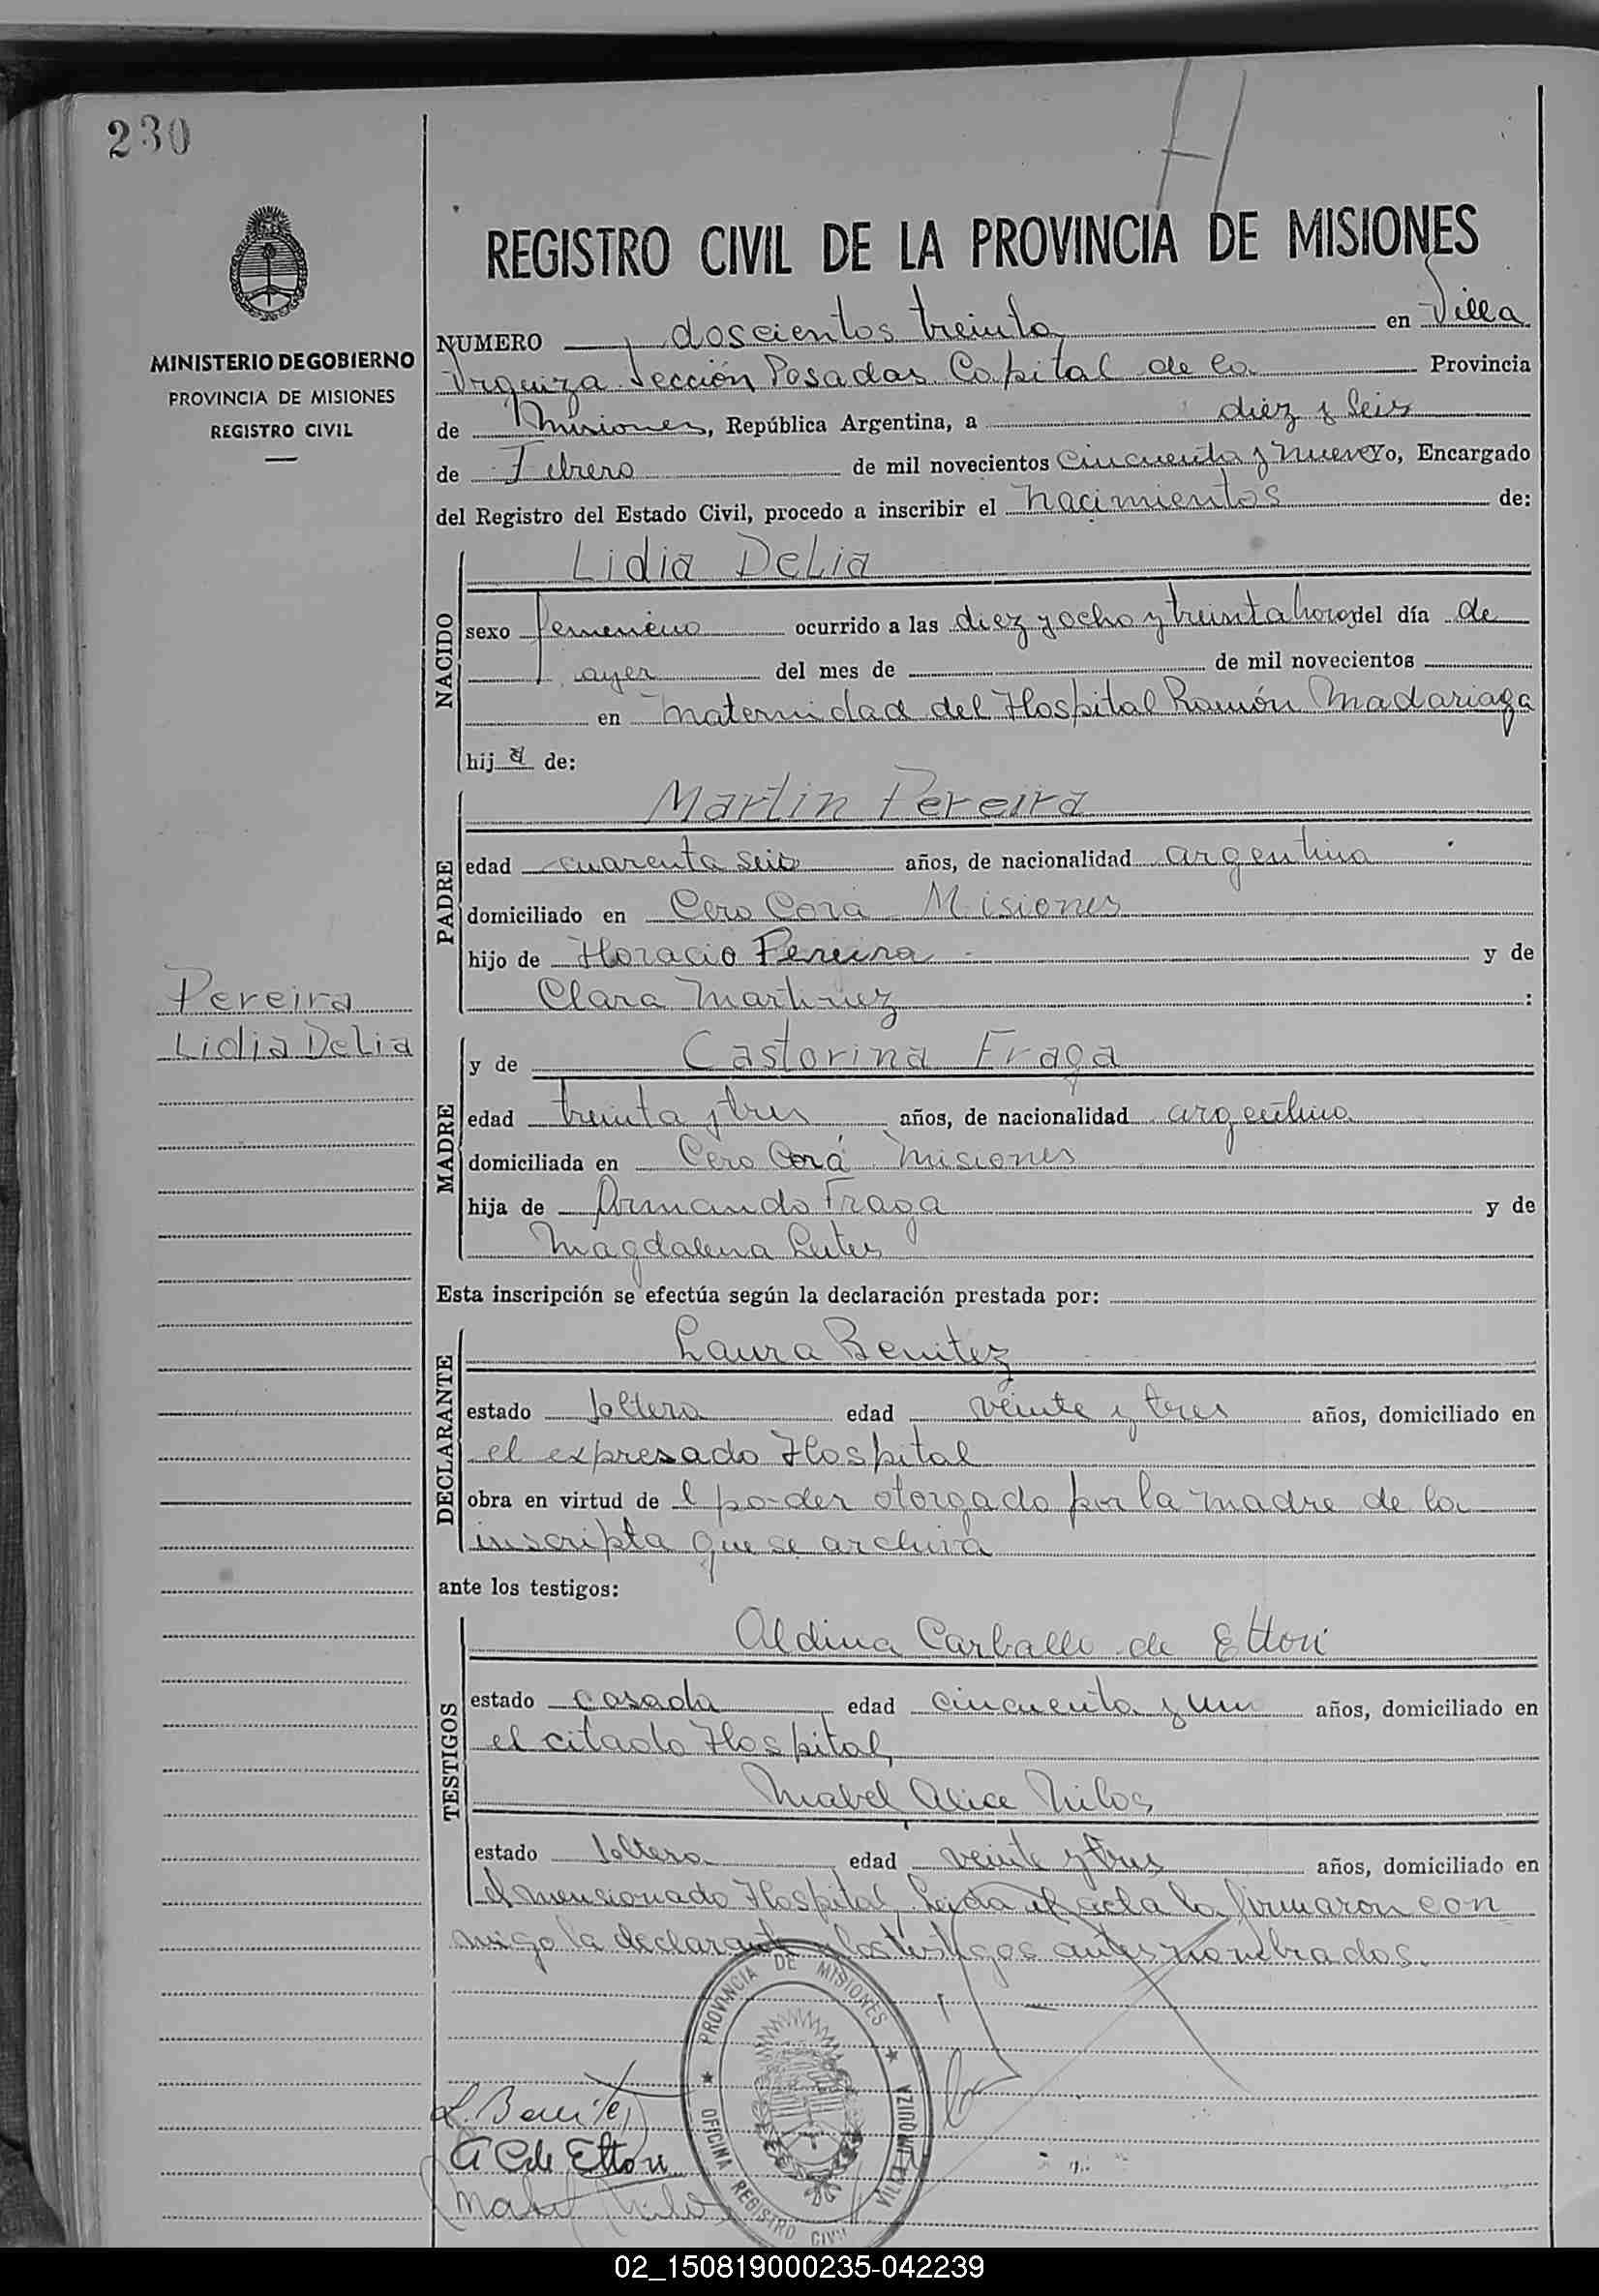 230
MINISTERIO DE GOBIERNO
PROVINCIA DE MISIONES
REGISTRO CIVIL
REGISTRO CIVIL DE LA PROVINCIA DE MISIONES
NUMERO doscientos treinta en Villa
Urquiza Sección Posadas Capital de la Provincia
de Misiones, República Argentina, a diez y seis
de Febrero de mil novecientos cincuenta y nueve Yo, Encargado
del Registro del Estado Civil, procedo a inscribir el nacimientos de:
NACIDO
Lidia Delia
sexo femenino ocurrido a las diez y ocho y treinta horas del día de
ayer del mes de de mil novecientos
en maternidad del Hospital Ramón Madariaga
hija de:
PADRE
Martin Pereira
edad cuarenta seis años, de nacionalidad argentino
domiciliado en Cero Corá Misiones
hijo de Horacio Pereira y de
Clara Martinez :
Pereira
Lidia Delia
MADRE
y de Castorina Fraga
edad treinta y tres años, de nacionalidad argentina
domiciliada en Cero Corá Misiones
hija de Armando Fraga y de
Magdalena
Esta inscripción se efectúa según la declaración prestada por:
DECLARANTE
Laura Benitez
estado soltera edad veinte y tres años, domiciliado en
el expresado Hospital
obra en virtud de l poder otorgado por la madre de la
inscripta que se archiva
ante los testigos:
TESTIGOS
Aldina Carballo de Ettori
estado casada edad cincuenta y un años, domiciliado en
el citado Hospital,
Mabel Alice Milos
estado soltera edad veinte y tres años, domiciliado en
el mensionado Hospital, Leida el acta la firmaron con
migo la declarante y los testigos antes nombrados.
PROVINCIA DE MISIONES
OFICINA REGISTRO CIVIL
VILLA URQUIZA
L. Benitez
A C de Ettori
Mabel Milos
02_150819000235-042239